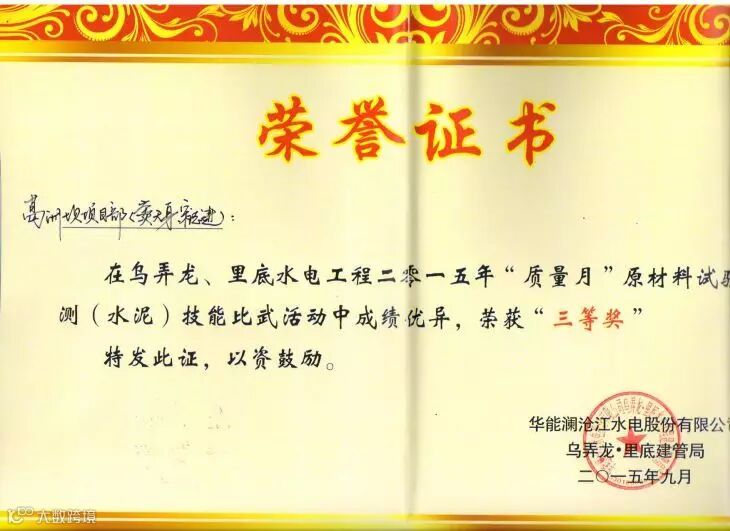 荣誉证书
坝项目部
在乌弄龙、里底水电工程二零一五年“质量月”原材料试
测（水泥）技能比武活动中成绩优异，荣获“三等奖”
特发此证，以资鼓励。
华能澜沧江水电股份有限公
乌弄龙·里底建管局
二〇一五年九月
大数跨境